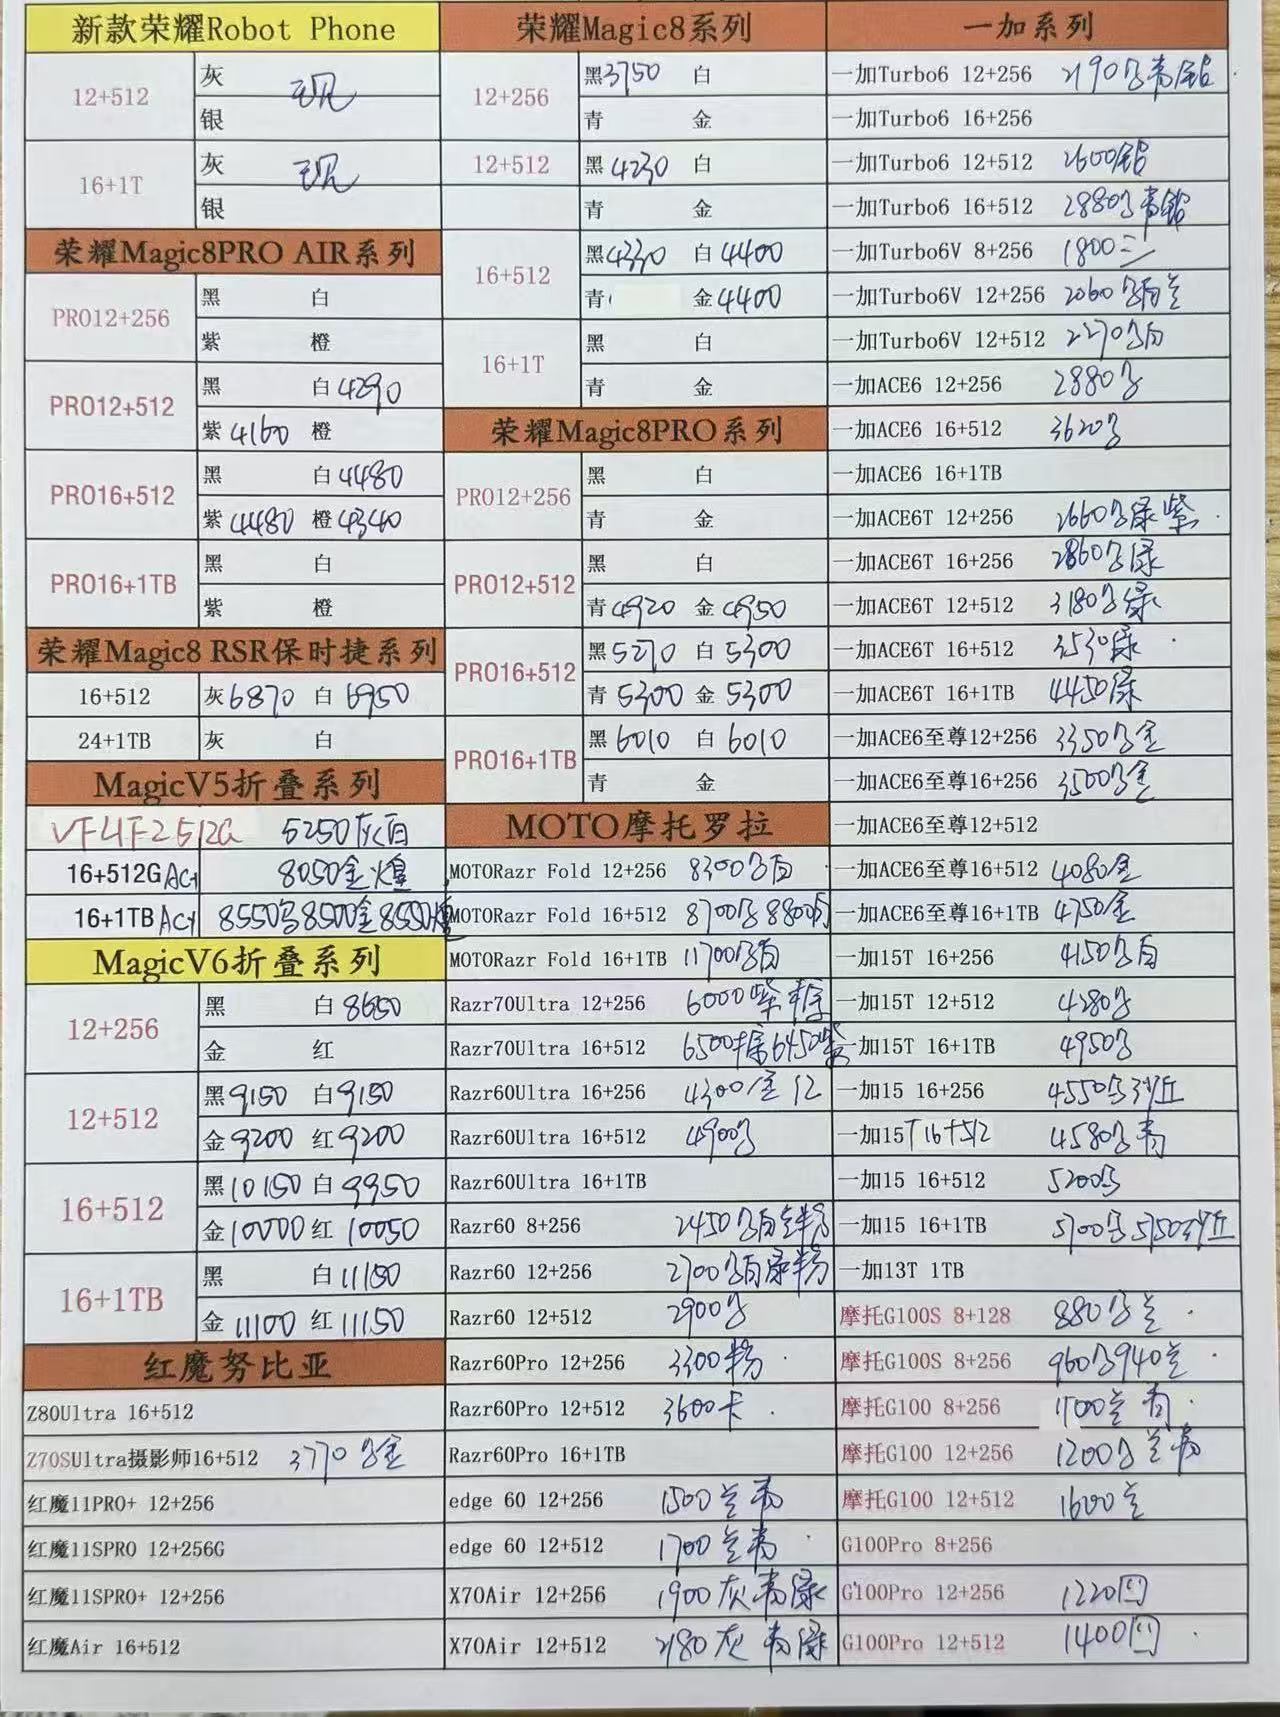 新款荣耀Robot Phone
12+512
灰 现
银
16+1T
灰 现
银
荣耀Magic8PRO AIR系列
PRO12+256
黑 白
紫 橙
PRO12+512
黑 白4290
紫4160 橙
PRO16+512
黑 白4480
紫4480 橙4340
PRO16+1TB
黑 白
紫 橙
荣耀Magic8 RSR保时捷系列
16+512 灰6870 白6950
24+1TB 灰 白
MagicV5折叠系列
512G 5250灰白
16+512G 8050金
16+1TB 8550 8500金8550
MagicV6折叠系列
12+256
黑 白8650
金 红
12+512
黑9150 白9150
金9200 红9200
16+512
黑10150 白9950
金10000 红10050
16+1TB
黑 白11150
金11100 红11150
红魔努比亚
Z80Ultra 16+512
Z70SUltra摄影师16+512 3770 金
红魔11PRO+ 12+256
红魔11SPRO 12+256G
红魔11SPRO+ 12+256
红魔Air 16+512
荣耀Magic8系列
12+256
黑3750 白
青 金
12+512
黑4230 白
青 金
16+512
黑4330 白4400
青 金4400
16+1T
黑 白
青 金
荣耀Magic8PRO系列
PRO12+256
黑 白
青 金
PRO12+512
黑 白
青4920 金4950
PRO16+512
黑5270 白5300
青5300 金5300
PRO16+1TB
黑6010 白6010
青 金
MOTO摩托罗拉
MOTORazr Fold 12+256 8300 白
MOTORazr Fold 16+512 8700 8800
MOTORazr Fold 16+1TB 11700 白
Razr70Ultra 12+256 6000紫
Razr70Ultra 16+512 6500 6450紫
Razr60Ultra 16+256 4300金 红
Razr60Ultra 16+512 4900
Razr60Ultra 16+1TB
Razr60 8+256 2450 白兰粉
Razr60 12+256 2700 白绿粉
Razr60 12+512 2900
Razr60Pro 12+256 3300粉
Razr60Pro 12+512 3600卡
Razr60Pro 16+1TB
edge 60 12+256 1500兰青
edge 60 12+512 1700兰青
X70Air 12+256 1900灰青绿
X70Air 12+512 2180灰 青绿
一加系列
一加Turbo6 12+256 2190 青
一加Turbo6 16+256
一加Turbo6 12+512 2600
一加Turbo6 16+512 2880 青
一加Turbo6V 8+256 1800三
一加Turbo6V 12+256 2060 白兰
一加Turbo6V 12+512 2270 白
一加ACE6 12+256 2880
一加ACE6 16+512 3620
一加ACE6 16+1TB
一加ACE6T 12+256 2660 绿紫
一加ACE6T 16+256 2860 绿
一加ACE6T 12+512 3180 绿
一加ACE6T 16+512 3530绿
一加ACE6T 16+1TB 4450绿
一加ACE6至尊12+256 3350 金
一加ACE6至尊16+256 3500 金
一加ACE6至尊12+512
一加ACE6至尊16+512 4080金
一加ACE6至尊16+1TB 4750金
一加15T 16+256 4150 白
一加15T 12+512 4280
一加15T 16+1TB 4950
一加15 16+256 4550 沙丘
一加15T 16+512 4580 青
一加15 16+512 5200
一加15 16+1TB 5700 5750沙丘
一加13T 1TB
摩托G100S 8+128 880 兰
摩托G100S 8+256 960 940兰
摩托G100 8+256 1100兰 青
摩托G100 12+256 1200 兰 青
摩托G100 12+512 1600兰
G100Pro 8+256
G100Pro 12+256 1220
G100Pro 12+512 1400